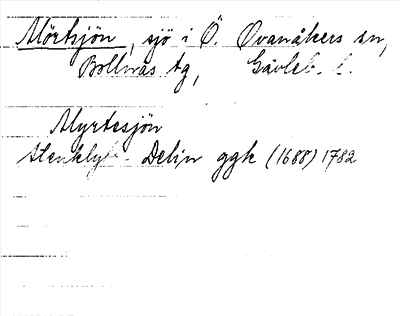 Mörtsjön, sjö i Ö. Ovanåkers sn,
Bollnäs tg, Gävleb. l.
Myrtesjön
Delin ggk (1688) 1782